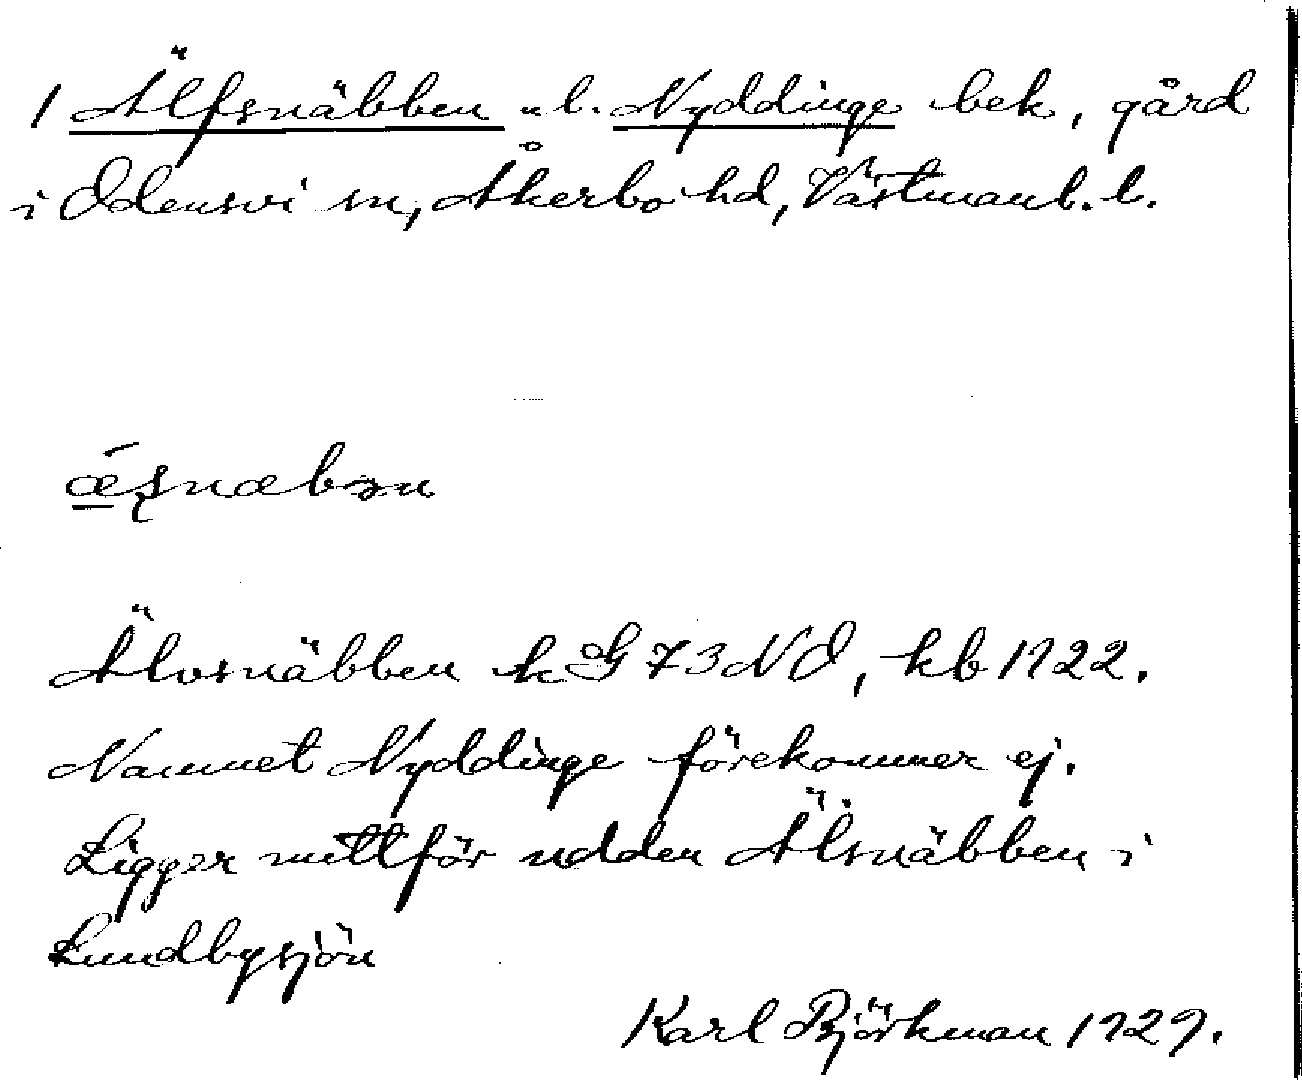 1 Älfsnäbben el. Nyddinge bek, gård
i Odensvi sn, Åkerbo hd, Västmanl. l.
ǽsnæbən
Älvsnäbben k G 73 NO, kb 1922.
Namnet Nyddinge förekommer ej.
Ligger mittför udden Älsnäbben i
Lundbysjön
Karl Björkman 1929.